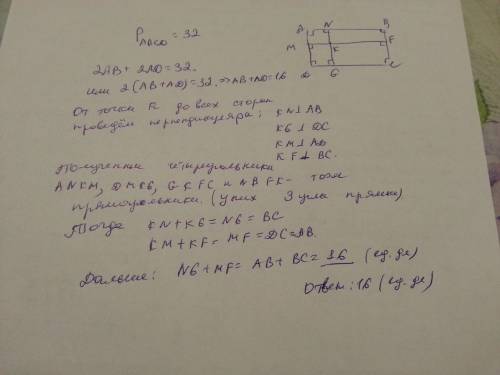 P ABCD = 32
2AB + 2AD = 32.
или 2(AB+AD)=32. => AB+AD=16
От точки K до всех сторон
проведём перпендикуляра:
KN⊥AB
KG⊥DC
KM⊥AD
KF⊥BC.
A N B
M K F
D G C
Полученные четырёхугольники
ANKM, DMKG, GKFC и NBFK - тоже
прямоугольники. (у них 3 угла прямые)
Тогда KN+KG = NG = BC
KM+KF = MF = DC = AB.
Дальше: NG+MF = AB+BC = 16 (ед. дл)
Ответ: 16 (ед. дл)